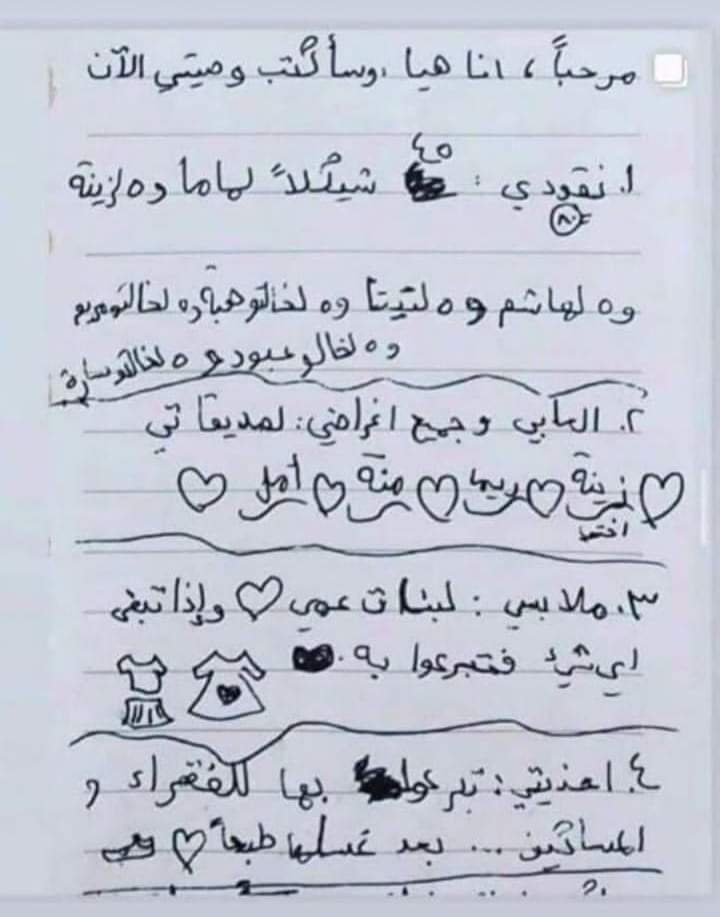 مرحباً ، انا هيا ، وسأكتب وصيتي الآن
١. نقودي : ٤٥ شيكلاً لماما و٥ لزينة
٨٠
و٥ لهاشم و٥ لتيتا و٥ لخالتو هبة و٥ لخالتو مريم
و٥ لخالو عبود و٥ لخالتو سارة
٢. العابي وجميع اغراضي : لصديقاتي
زينة ريما منة أمل
اختي
٣. ملابسي : لبنات عمي وإذا تبقى
اي شيء فتبرعوا به .
٤. احذيتي : تبرعوا بها للفقراء و
المساكين ... بعد غسلها طبعاً